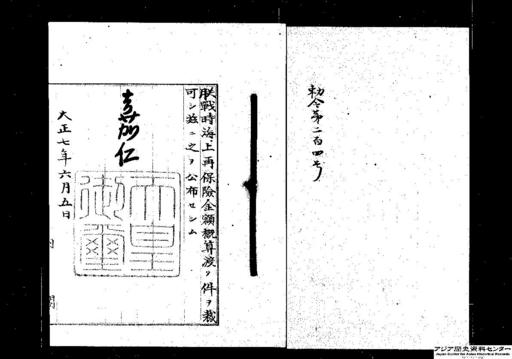 勅令第二百四号
朕戦時海上再保険金額概算渡ノ件ヲ裁
可シ茲ニ之ヲ公布セシム
嘉仁
天皇
御璽
大正七年六月五日
内閣
アジア歴史資料センター
Japan Center for Asian Historical Records